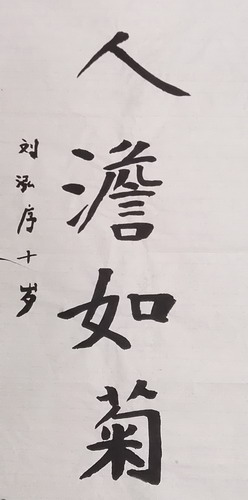 人澹如菊
刘泓序十岁